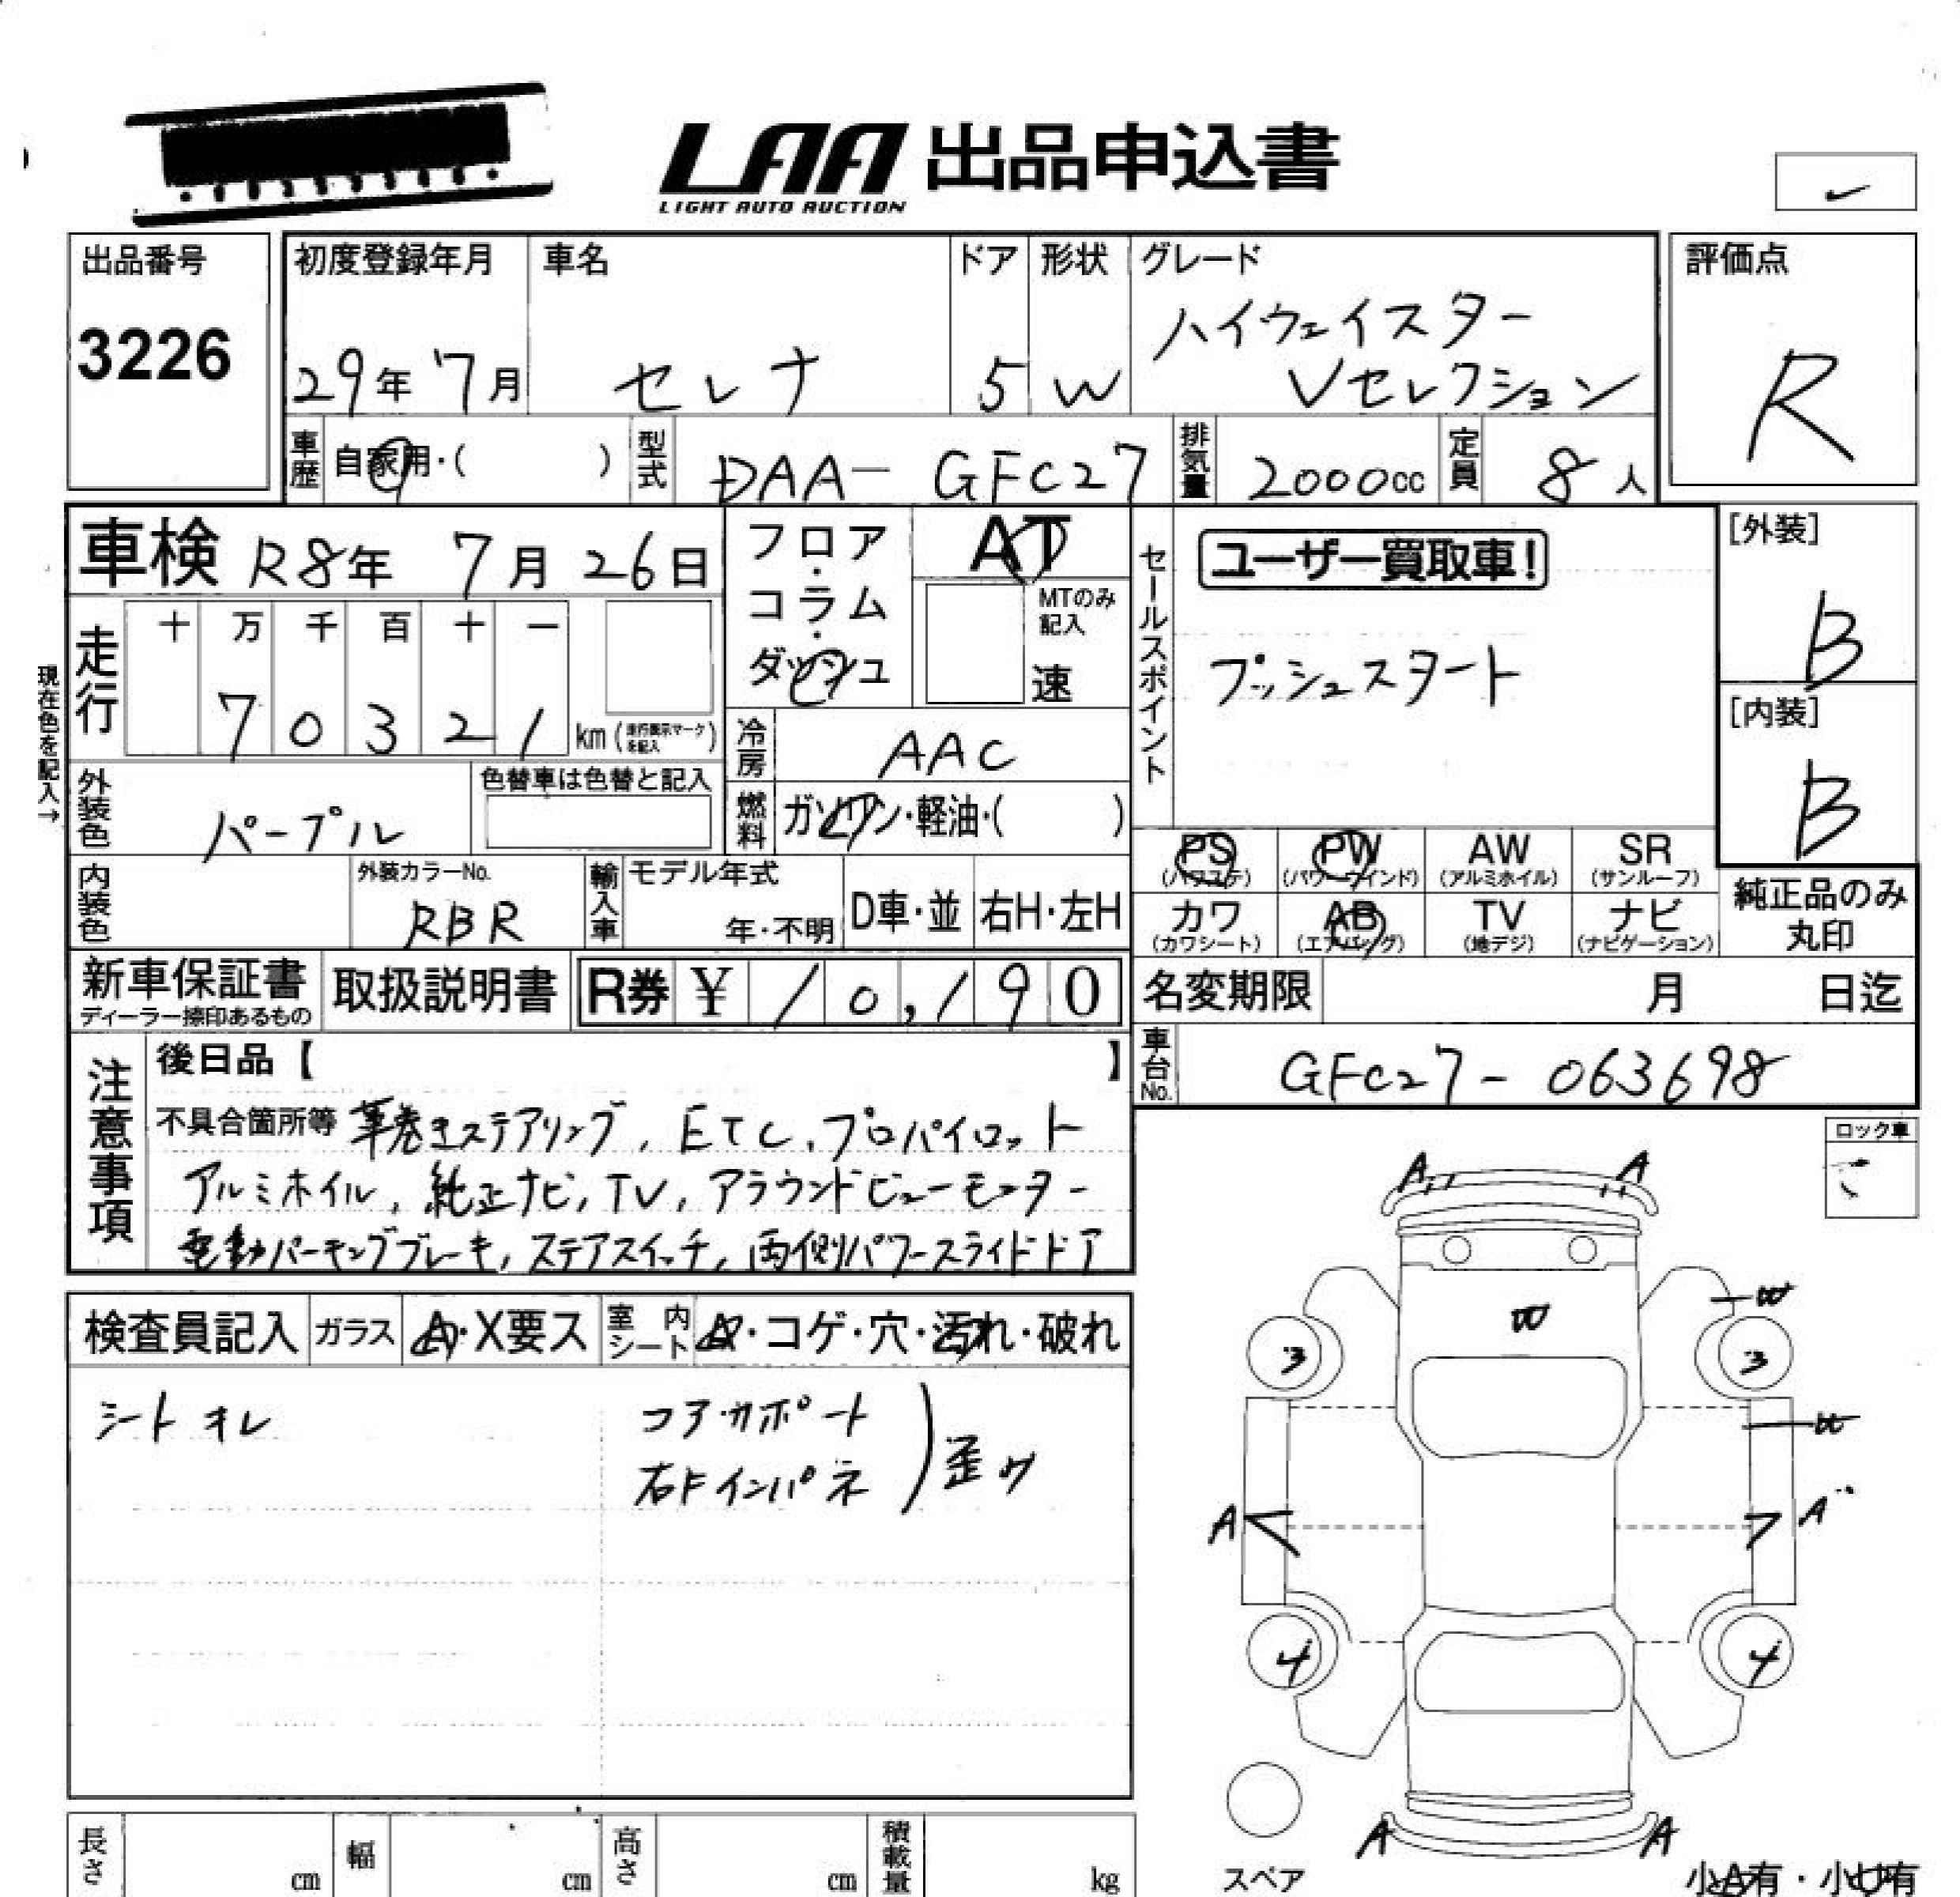 LAA 出品申込書
LIGHT AUTO AUCTION
出品番号
3226
初度登録年月
29年 7月
車名
セレナ
ドア
5
形状
W
グレード
ハイウェイスター
Vセレクション
評価点
R
車歴 自家用・( )
型式 DAA- GFC27
排気量 2000cc
定員 8人
車検 R8年 7月 26日
フロア・コラム・ダッシュ
AT
MTのみ記入
速
セールスポイント
ユーザー買取車!
プッシュスタート
[外装]
B
[内装]
B
現在色を記入→
走行 十 万 千 百 十 一
7 0 3 2 1 km (走行表示マークを記入)
冷房 AAC
外装色 パープル
色替車は色替と記入
燃料 ガソリン・軽油・( )
PS (パワステ)
PW (パワーウインド)
AW (アルミホイル)
SR (サンルーフ)
カワ (カワシート)
AB (エアバッグ)
TV (地デジ)
ナビ (ナビゲーション)
純正品のみ丸印
内装色
外装カラーNo.
RBR
輸入車 モデル年式
年・不明
D車・並
右H・左H
新車保証書
ディーラー捺印あるもの
取扱説明書
R券 ¥ 10,190
名変期限 月 日迄
車台No. GFC27- 063698
注意事項
後日品【 】
不具合箇所等 革巻きステアリング, ETC, プロパイロット
アルミホイル, 純正ナビ, TV, アラウンドビューモニター
電動パーキングブレーキ, ステアスイッチ, 両側パワースライドドア
ロック車
検査員記入
ガラス A・X要ス
室内シート A・コゲ・穴・汚れ・破れ
シート キレ
コアサポート
右Fインパネ
歪ワ
A A
W
W
3 3
A A
4 4
A A
スペア
小A有・小U有
長さ cm
幅 cm
高さ cm
積載量 kg